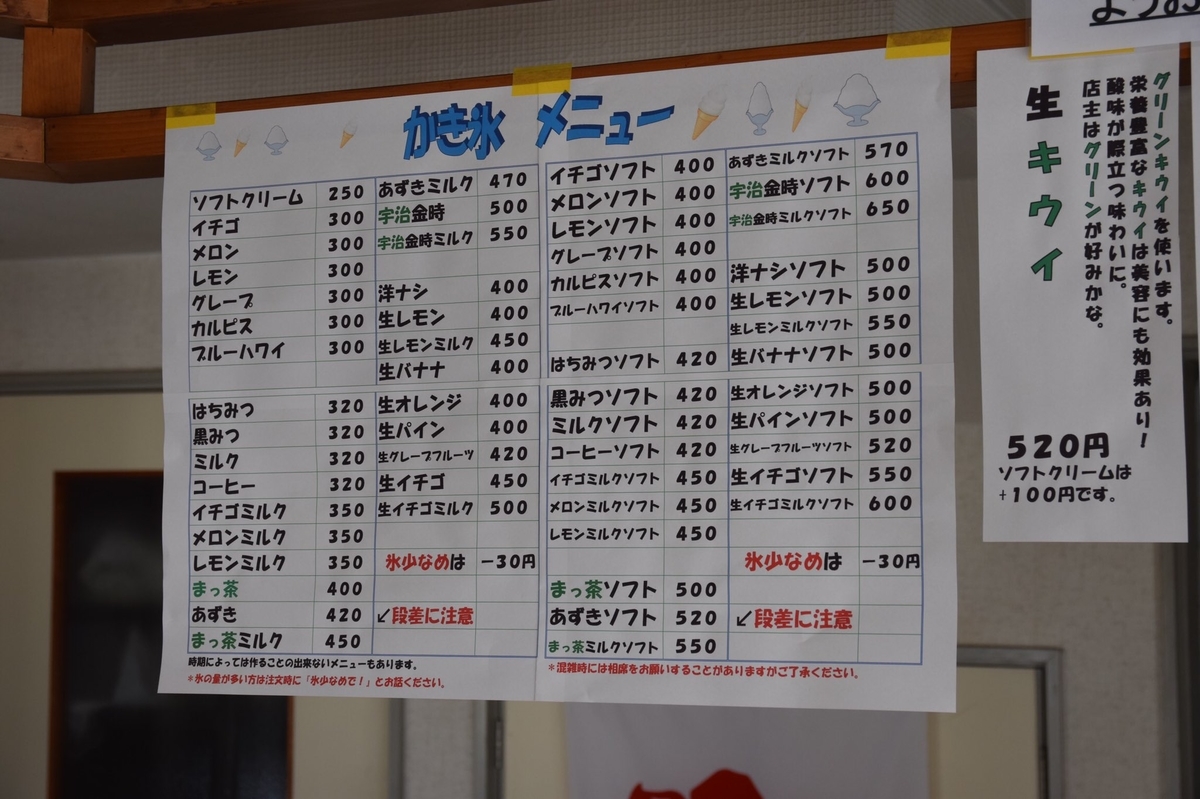 かき氷 メニュー
ソフトクリーム 250
イチゴ 300
メロン 300
レモン 300
グレープ 300
カルピス 300
ブルーハワイ 300
はちみつ 320
黒みつ 320
ミルク 320
コーヒー 320
イチゴミルク 350
メロンミルク 350
レモンミルク 350
まっ茶 400
あずき 420
まっ茶ミルク 450
あずきミルク 470
宇治金時 500
宇治金時ミルク 550
洋ナシ 400
生レモン 400
生レモンミルク 450
生バナナ 400
生オレンジ 400
生パイン 400
生グレープフルーツ 420
生イチゴ 450
生イチゴミルク 500
氷少なめは −30円
↙段差に注意
イチゴソフト 400
メロンソフト 400
レモンソフト 400
グレープソフト 400
カルピスソフト 400
ブルーハワイソフト 400
はちみつソフト 420
黒みつソフト 420
ミルクソフト 420
コーヒーソフト 420
イチゴミルクソフト 450
メロンミルクソフト 450
レモンミルクソフト 450
まっ茶ソフト 500
あずきソフト 520
まっ茶ミルクソフト 550
あずきミルクソフト 570
宇治金時ソフト 600
宇治金時ミルクソフト 650
洋ナシソフト 500
生レモンソフト 500
生レモンミルクソフト 550
生バナナソフト 500
生オレンジソフト 500
生パインソフト 500
生グレープフルーツソフト 520
生イチゴソフト 550
生イチゴミルクソフト 600
氷少なめは −30円
↙段差に注意
時期によっては作ることの出来ないメニューもあります。
＊氷の量が多い方は注文時に「氷少なめで！」とお話ください。
＊混雑時には相席をお願いすることがありますがご了承ください。
グリーンキウイを使います。
栄養豊富なキウイは美容にも効果あり！
酸味が際立つ味わいに。
店主はグリーンが好みかな。
生キウイ
520円
ソフトクリームは
+100円です。